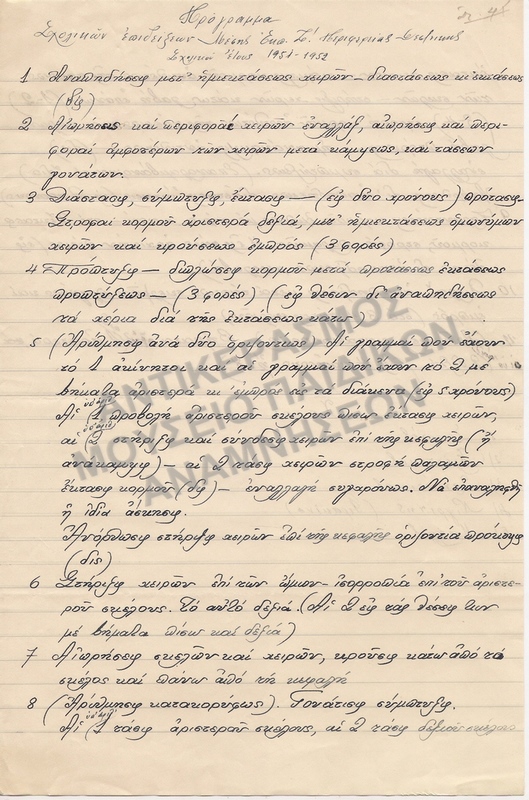 Πρόγραμμα
Σχολικῶν ἐπιδείξεων Μέσης Ἐκπ. Περιφερείας
Σχολικοῦ ἔτους 1951-1952
1 Ἀναπηδήσεις μετ' ἡμιεκτάσεως χειρῶν - διαστάσεως κ' ἐκτάσεως
(δίς)
2 Αἰωρήσεις καί περιφοραί χειρῶν ἐναλλάξ, αἰωρήσεις καί περι-
φοραί ἀμφοτέρων τῶν χειρῶν μετά κάμψεως, καί τάσεων
γονάτων.
3 Διάστασις, σύμπτυξις, ἔκτασις - (εἰς δύο χρόνους) πρότασις.
Στροφαί κορμοῦ ἀριστερά δεξιά, μετ' ἡμιεκτάσεως ὁμωνύμων
χειρῶν καί κρούσεως ἐμπρός (3 φορές)
4 Πρόπτυξις - διπλώσεις κορμοῦ μετά προτάσεως ἐκτάσεως
προπτύξεως - (3 φορές) (εἰς θέσιν δι' ἀναπηδήσεως
τά χέρια διά τῆς ἐκτάσεως κάτω
5 (Ἀρίθμησις ἀνά δύο ὁριζοντίως) Αἱ γραμμαί πού ἔχουν
τό 1 ἀκίνητοι καί αἱ γραμμαί πού ἔχουν τό 2 μέ
βήματα ἀριστερά κ' ἐμπρός εἰς τά διάκενα (εἰς 5 χρόνους)
Αἱ 1 προβολή ἀριστεροῦ σκέλους πίσω ἔκτασις χειρῶν,
αἱ 2 στήριξις καί σύνδεσις χειρῶν ἐπί τῆς κεφαλῆς (ἤ
ἀνάκαμψις) - αἱ 2 τάσις χειρῶν στροφή παλαμῶν
ἔκτασις κορμοῦ (δίς) - ἐναλλαγή συγχρόνως. Νά ἐπαναληφθῇ
ἡ ἰδία ἄσκησις.
Ἀνόρθωσις στήριξις χειρῶν ἐπί τῆς κεφαλῆς ὁριζοντία πρόκυψις
(δίς)
6 Στήριξις χειρῶν ἐπί τῶν ὤμων - ἰσορροπία ἐπί τοῦ ἀριστε-
ροῦ σκέλους. Τό αὐτό δεξιά. (Αἱ 2 εἰς τάς θέσεις των
μέ βήματα πίσω καί δεξιά)
7 Αἰωρήσεις σκελῶν καί χειρῶν, κροῦσις κάτω ἀπό τό
σκέλος καί πάνω ἀπό τή κεφαλή
8 (Ἀρίθμησις κατακορύφως). Γονάτισις σύμπτυξις.
Αἱ 1 τάσις ἀριστεροῦ σκέλους, αἱ 2 τάσις δεξιοῦ σκέλους
ΑΝΤΙΚΕΡΑΣΜΟΣ
ΜΟΥΣΕΙΟ ΠΑΙΔΙΚΩΝ
ΑΝΑΜΝΗΣΕΩΝ